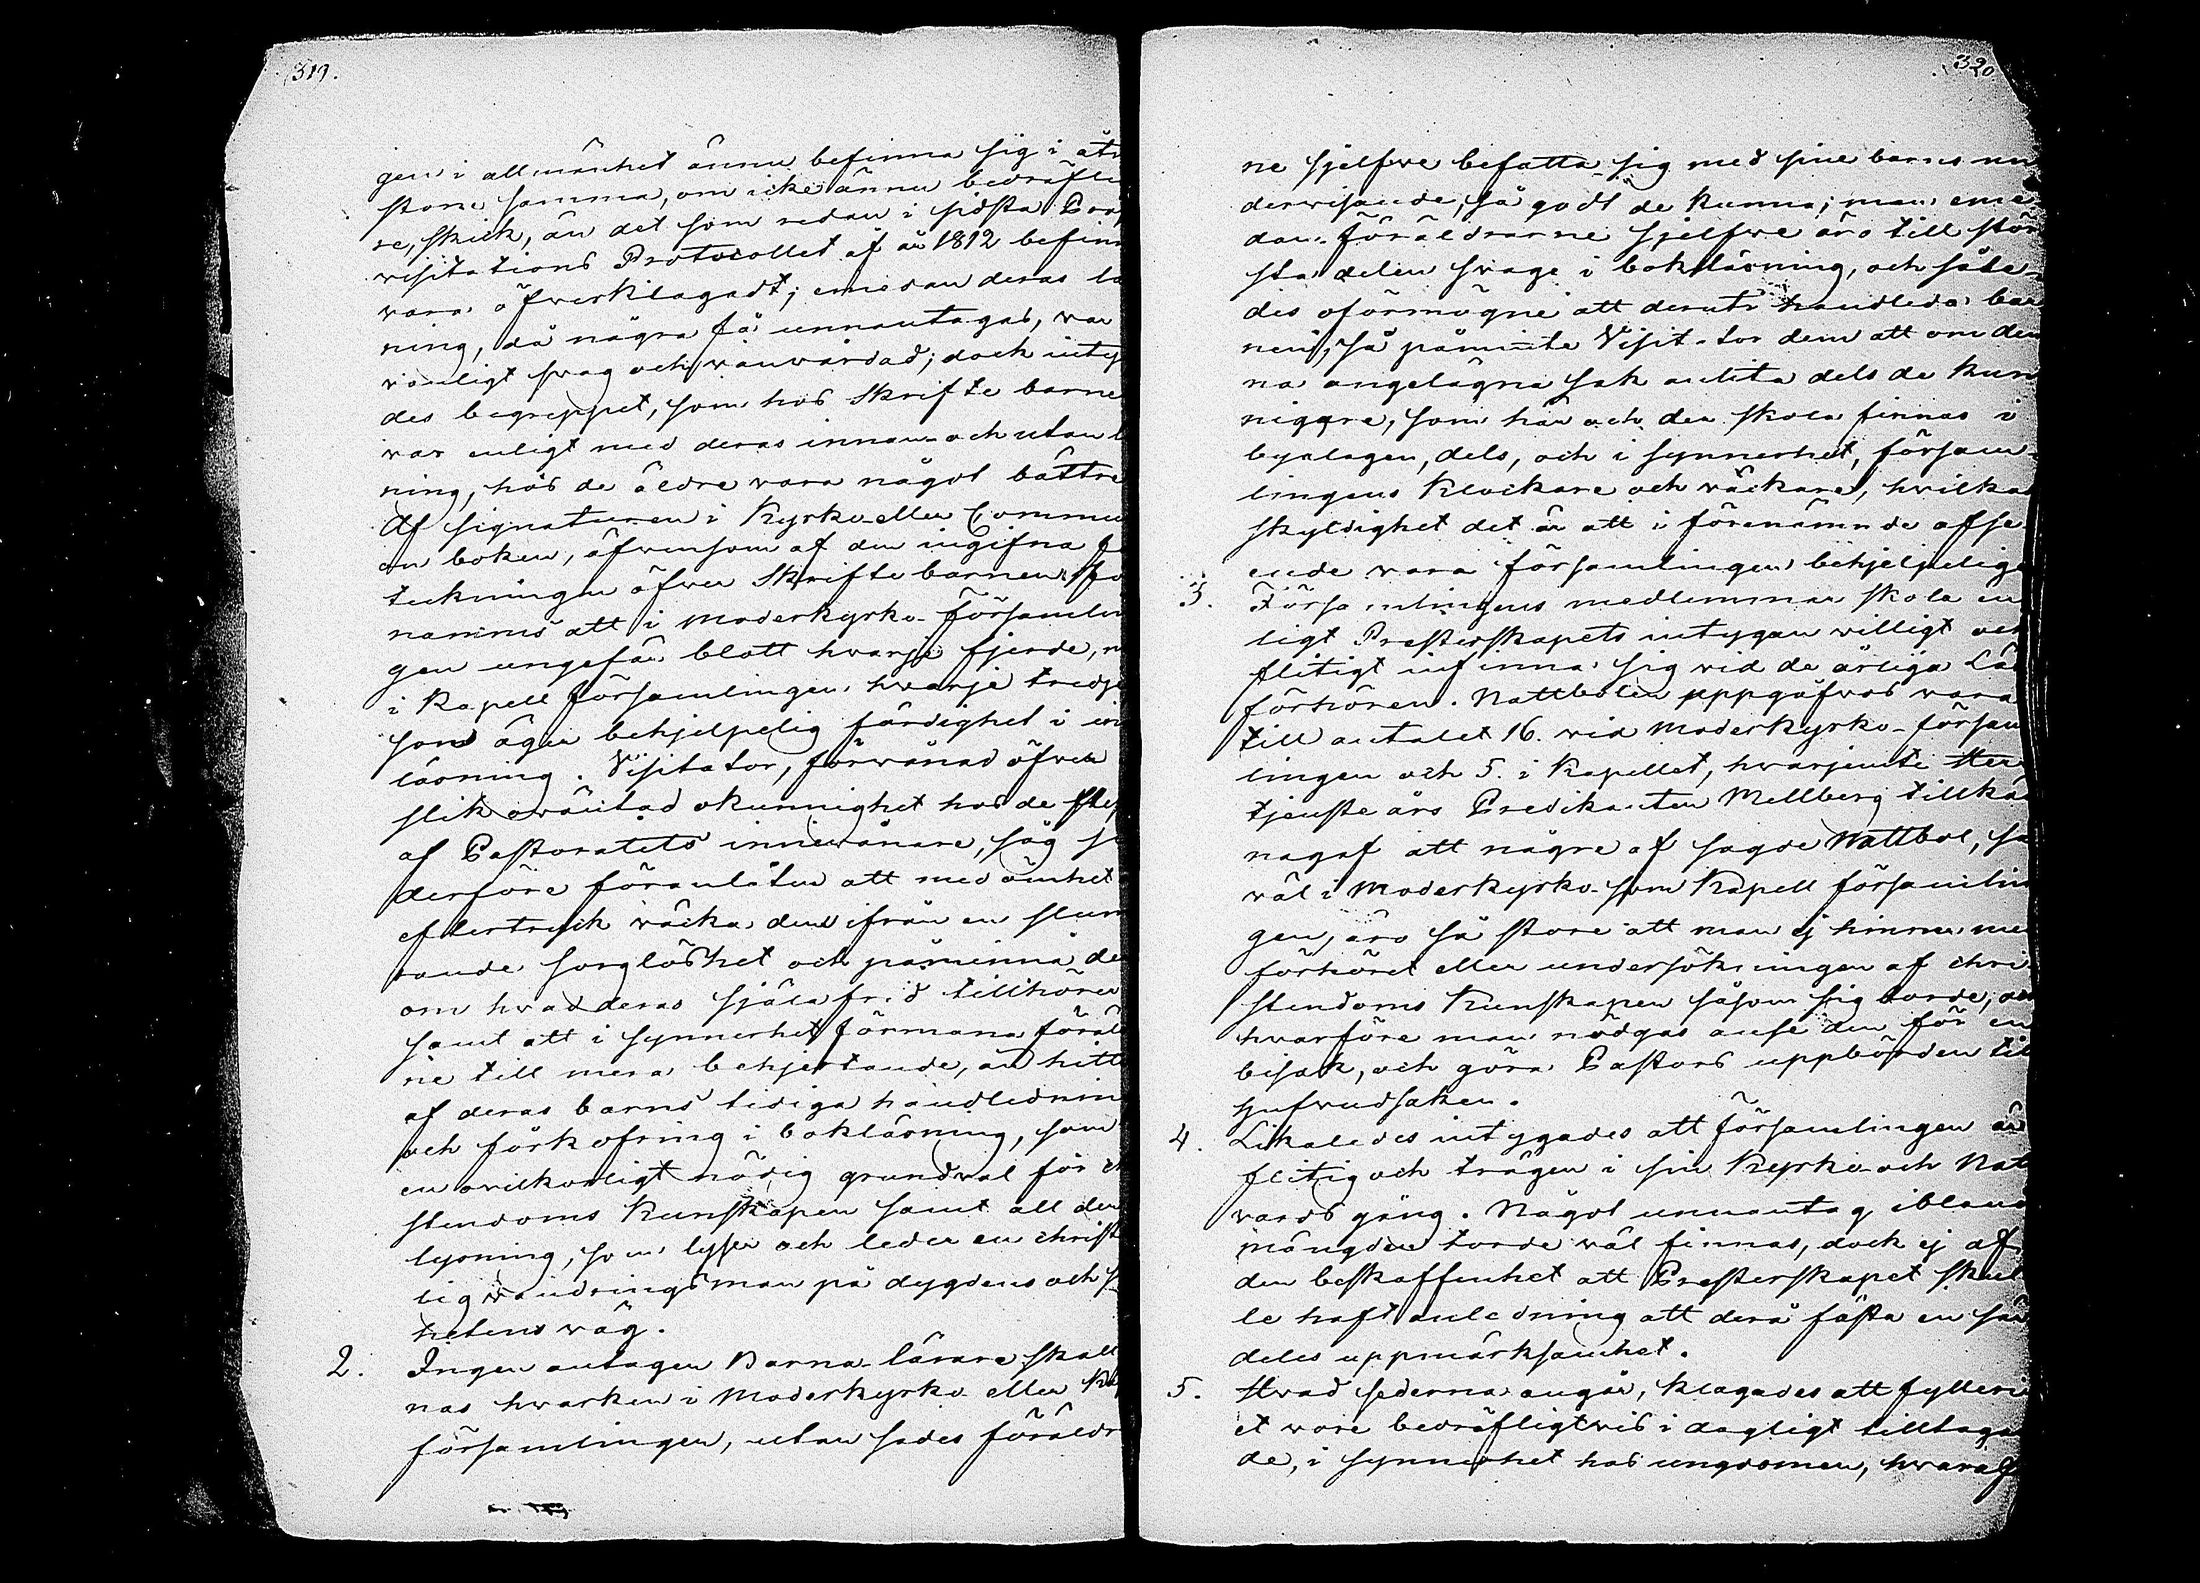 319.
gen i allmänhet ännu befinna sig i åt
stone samma, om icke ännu bedröfli
re, skick, än det som redan i sidsta
visitations Protocollet af år 1812 befin
vara öfverklagadt; emedan deras lä
ning, då några få unnantagas, var
vanligt svag och wanwårdad; dock
des begreppet, som hos Skrifte barne
var enligt med deras innan- och utan l
ning, hos de äldre vara något bättre
Af signaturen i Kyrko- eller Commu
on boken, äfvensom af den ingifna
teckningen öfver Skriftebarnen
namms att i Moderkyrko-församlin
gen ungefär blott hvarje fjerde,
i Kapell församlingen hvarje tredje
som äger behjelpelig färdighet i in
läsning. Visitator, förwånad öfver
slik owäntad okunnighet hos de fle
af Pastoratets innewånare, såg
derföre föranlåten att med ömhet
eftertryck väcka dem ifrån en slum
rande sorglöshet och påminna de
om hvad deras själafrid tillhörer
samt att i synnerhet förmana föräl
ne till mera behjertande, än hitt
af deras barns tidiga handlednin
och förkofring i bokläsning, som
en ovilkorligt nödig grundval för
stendoms Kunskapen samt all den
lysning, som lyser och leder en christ
lig wandringsman på dygdens och s
hetens väg.
2. Ingen antagen Barna lärare skall
nas hwarken i Moderkyrko eller Ka
församlingen, utan sades föräldr
320
ne sjelfwe befatta sig med sine barns un
derwisande, så godt de kunna; men eme
dan föräldrarne sjelfwe äro till stör
sta delen svage i bokläsning, och såle-
des oförmögne att deruti handleda bar
nen, så påminte Visitator dem att om den
na angelägna sak anlita dels de kun
nigare, som här och der skola finnas i
byalagen, dels, och i synnerhet, försam-
lingens Klockare och väckare, hvilkas
skyldighet det är att i förenämnde afse
ende vara församlingen behjelpelige
3. Församlingens medlemmar skola en
ligt Presterskapets intygan willigt och
flitigt infinna sig vid de årliga Lä
förhören. Nattbolen uppgåfvos vara
till antalet 16. vid Moderkyrko-försam
lingen och 5. i Kapellet, hwarjemte Her
tjenste års Predikanten Mellberg tillkän
nagaf att några af sagde Nattbol, så
väl i Moderkyrko- som Kapell församlin
gen, äro så store att man ej hinner med
förhöret eller undersökningen af chri
stendoms Kunskapen såsom sig borde,
hvarföre man nödgas anse den för en
bisak, och göra Pastors uppbörden till
hufvudsaken.
4. Likaledes intygades att församlingen är
flitig och trägen i sin Kyrko- och Natt
vards gång. Något unnantag ibland
mängden torde väl finnas, dock ej af
den beskaffenhet att Presterskapet skul
le haft anledning att derå fästa en sär
deles uppmärksamhet.
5. Hvad sederna angår, klagades att fylleri
et wore bedröfligtvis i dagligt tilltagan
de, i synnerhet hos ungdomen, hvaraf